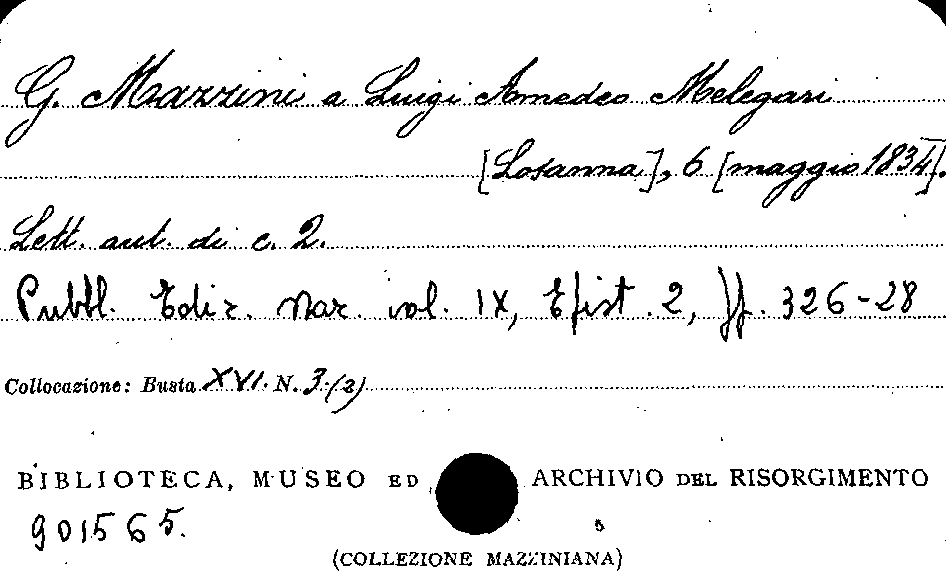 G. Mazzini a Luigi Amedeo Melegari
[Losanna], 6 [maggio 1834].
Lett. aut. di c. 2.
Pubbl. Ediz. Naz. vol. IX, Epist. 2, pp. 326-28
Collocazione: Busta XVI. N. 3.(2)
BIBLIOTECA, MUSEO ED ARCHIVIO DEL RISORGIMENTO
901565.
(COLLEZIONE MAZZINIANA)